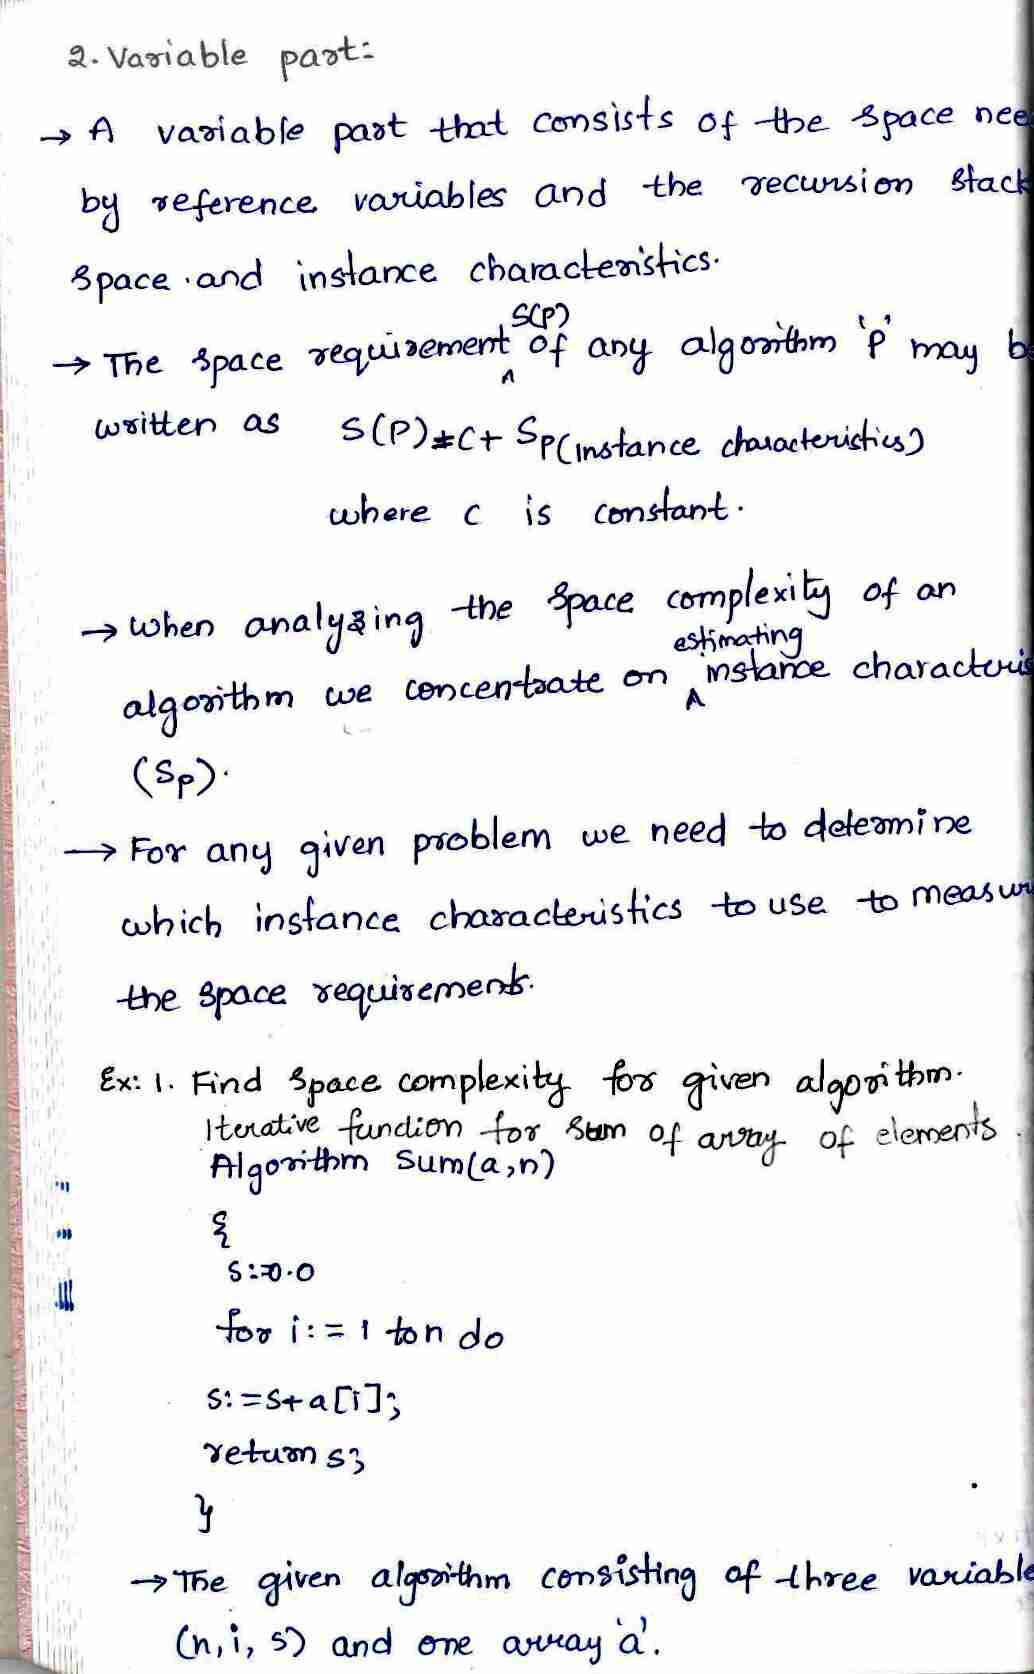 2. Variable part:-
→ A variable part that consists of the space nee
by reference variables and the recursion stack
space and instance characteristics.
S(P)
→ The space requirement ʌ of any algorithm 'p' may be
written as S(P)=C+ Sp(instance characteristics)
where c is constant.
→ when analyzing the space complexity of an
estimating
algorithm we concentrate on ʌ instance characteris
(Sp).
→ For any given problem we need to determine
which instance characteristics to use to measur
the space requirements.
Ex: 1. Find space complexity for given algorithm.
Iterative function for sum of array of elements.
Algorithm Sum(a,n)
{
s:=0.0
for i:= 1 to n do
s:=s+a[i];
return s;
}
→ The given algorithm consisting of three variable
(n, i, s) and one array 'a'.